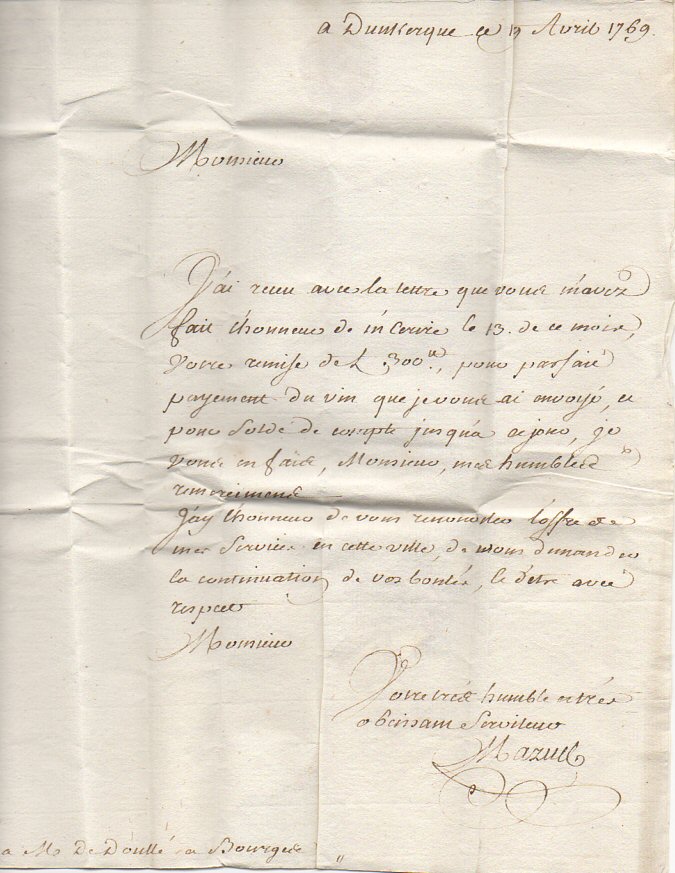 a Dunkerque ce 19 Avril 1769.
Monsieur
J'ai receu avec la lettre que vous m'avez
fait l'honneur de m'ecrire le 13. de ce mois,
votre remise de L 300 tt, pour parfait
payement du vin que je vous ai envoyé, et
pour solde de compte jusqu'a ce jour, je
vous en fais, Monsieur, mes humbles
remerciments
J'ay l'honneur de vous renouveller l'offre de
mes services en cette ville, de vous demander
la continuation de vos bontés, et d'etre avec
respect
Monsieur
Votre trés humble et trés
obeissant Serviteur
Mazuel
a Mr De Doullé a Bourges